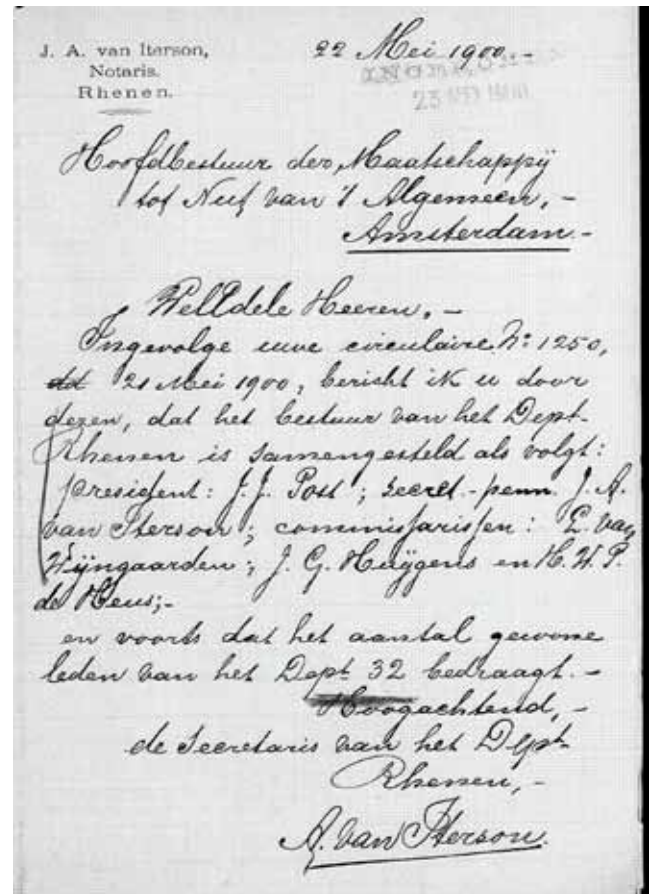 J. A. van Iterson,
Notaris.
Rhenen.
22 Mei 1900.-
23 MEI
Hoofdbestuur der Maatschappij
tot Nut van 't Algemeen, -
Amsterdam.-
WelEdele Heeren, -
Ingevolge uwe circulaire No: 1250,
dd 21 Mei 1900, bericht ik u door
dezen, dat het bestuur van het Dept.
Rhenen is samengesteld als volgt:
president: J. J. Post; secret.-penn. J. A.
van Iterson; commissarissen: E. van
Wijngaarden; J. G. Huijgens en H. W. P.
de Heus;-
en voorts dat het aantal gewone
leden van het Dept 32 bedraagt. -
Hoogachtend, -
de Secretaris van het Dept
Rhenen, -
A. van Iterson.